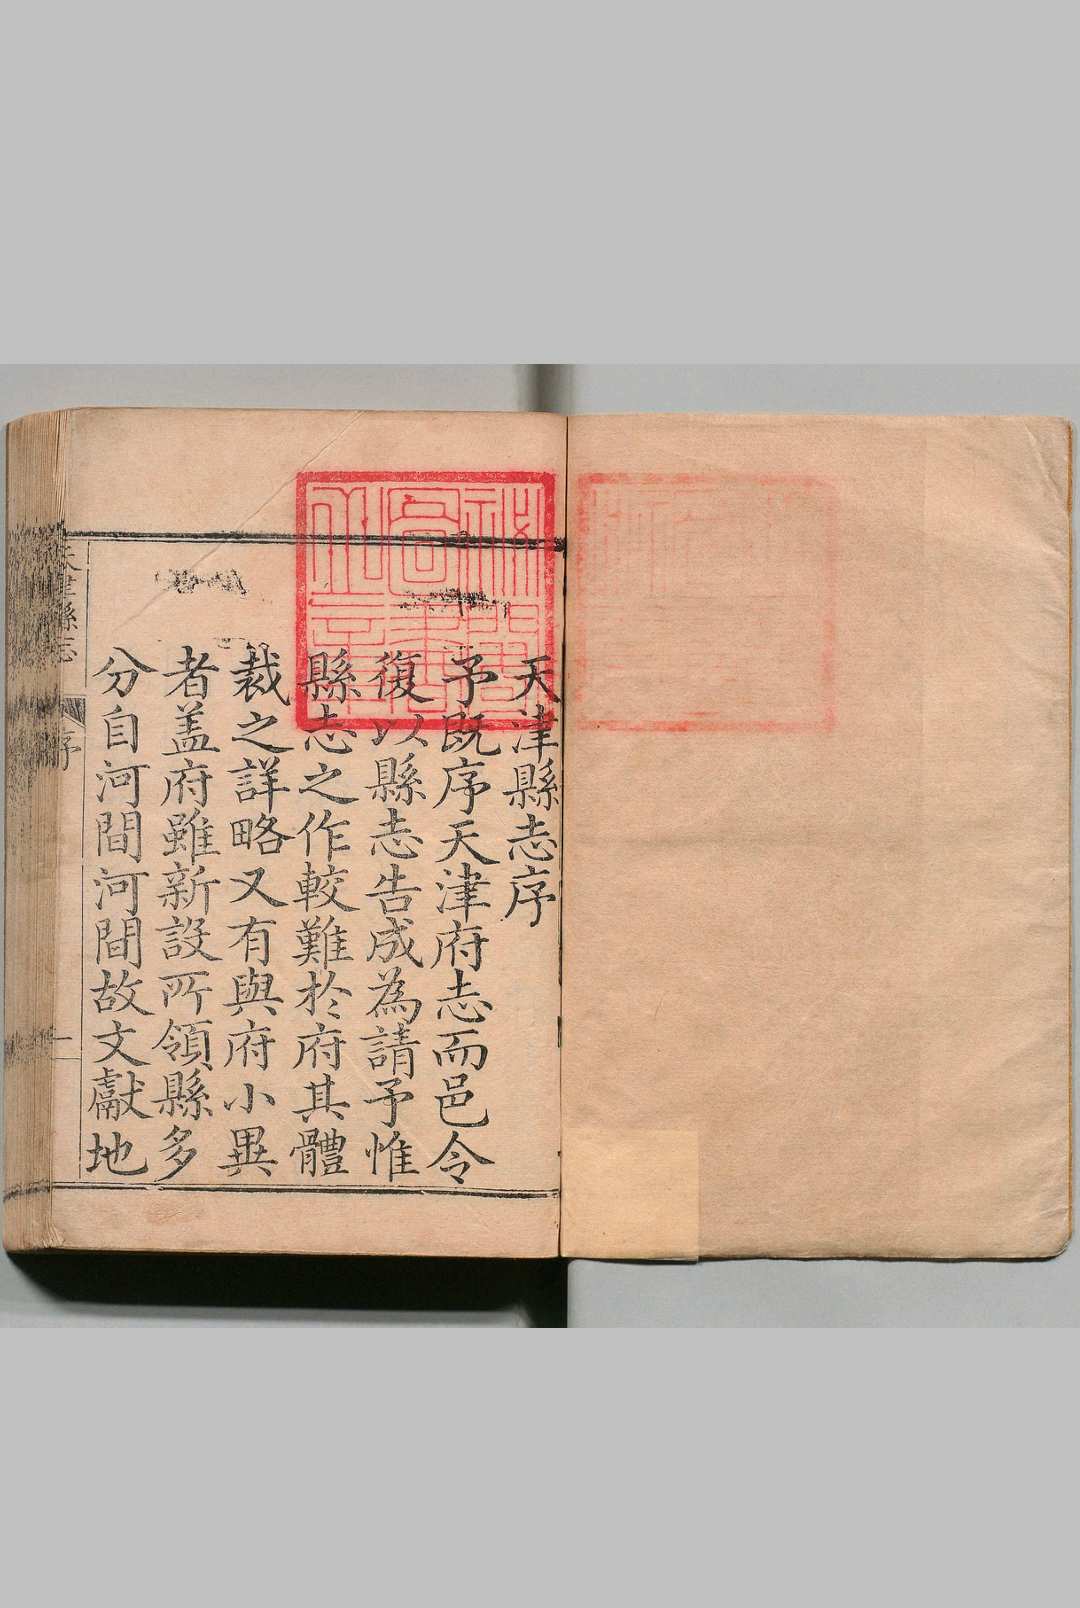 天津縣志序
予既序天津府志而邑令
復以縣志告成為請予惟
縣志之作較難於府其體
裁之詳略又有與府小異
者盖府雖新設所領縣多
分自河間河間故文獻地
天津縣志
序
一